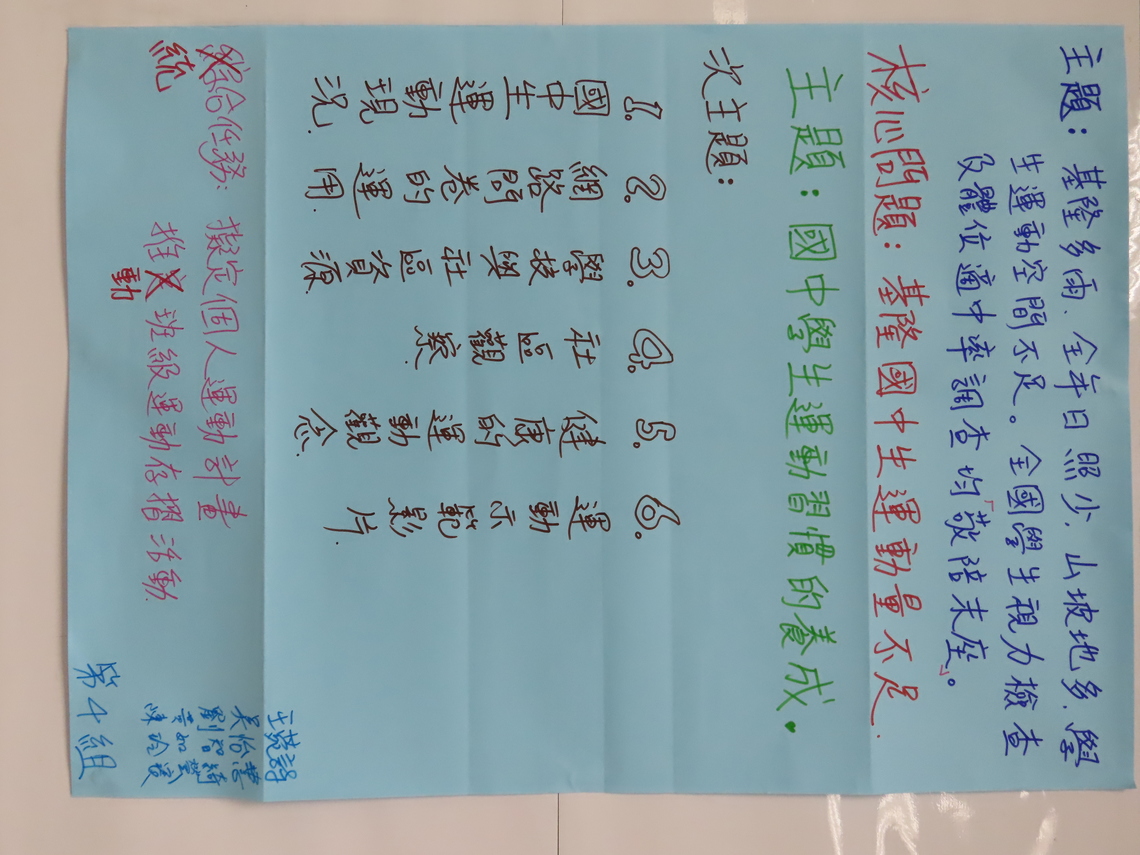 主題：基隆多雨、全年日照少、山坡地多、學
生運動空間不足。全國學生視力檢查
及體位適中率調查均「敬陪末座」。
核心問題：基隆國中生運動量不足.
主題：國中學生運動習慣的養成.
次主題：
1. 國中生運動現況.
2. 網路問卷的運用.
3. 學校與社區資源
4. 社區觀察.
5. 健康的運動觀念
6. 運動示範影片.
統合任務：擬定個人運動計畫
推動班級運動存摺活動
第4組